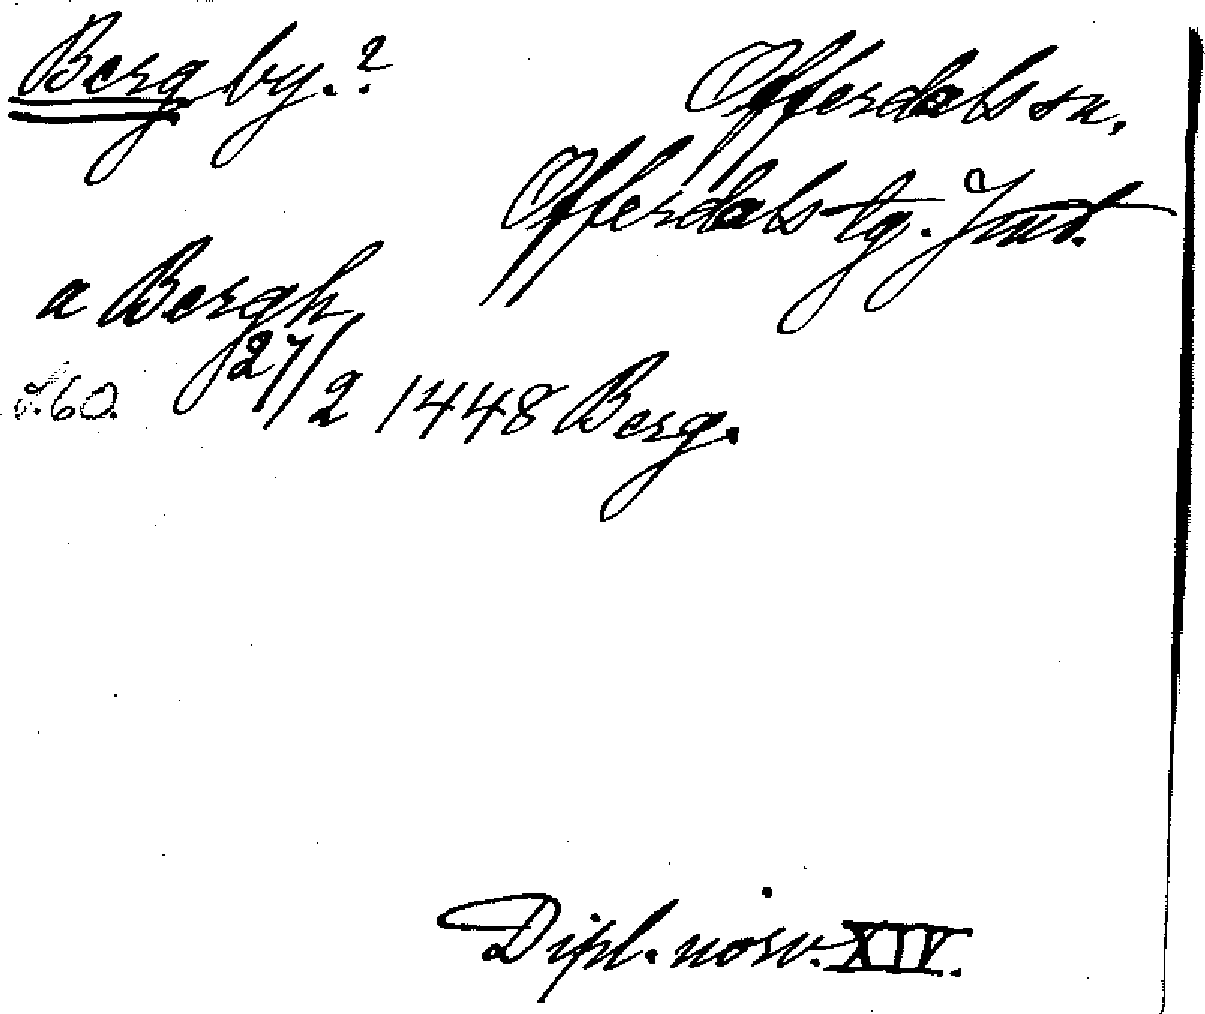 Berg by.?
Offerdals sn.
Offerdals tg. Jmt.
a Bergh
s.60. 27/2 1448 Berg.
Dipl. norv. XIV.